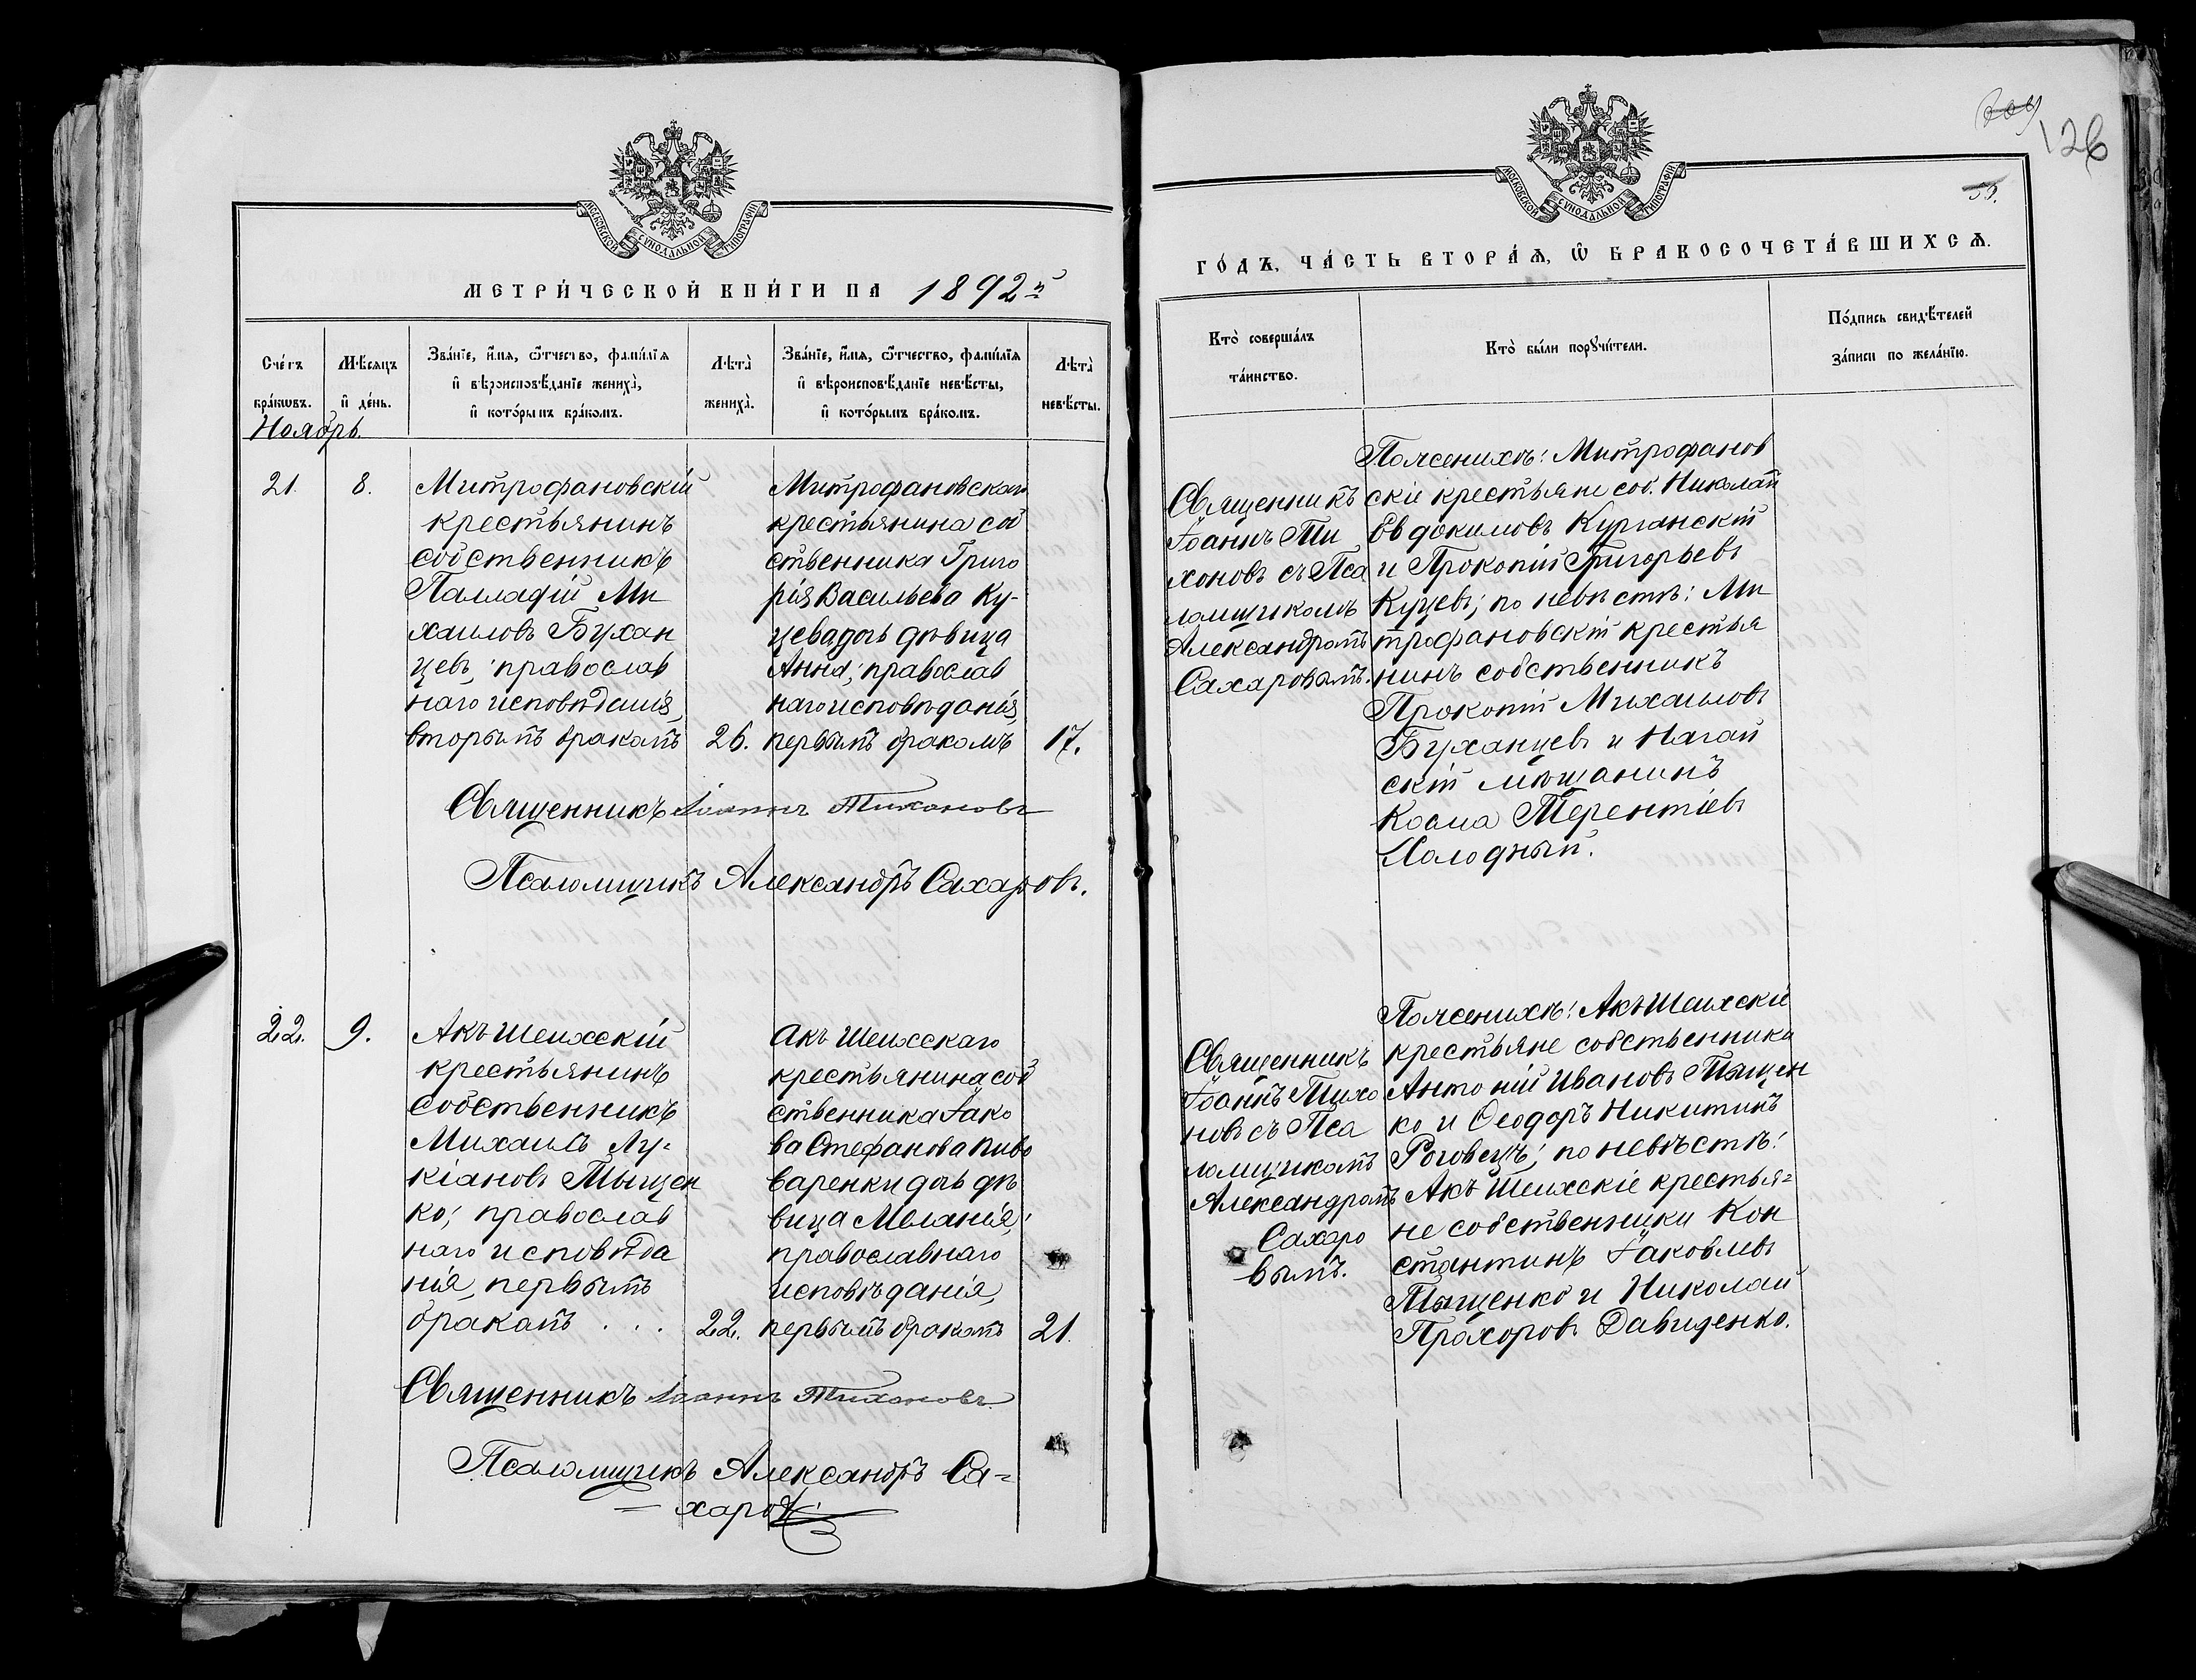 МОСКОВСКОЙ СУНОДАЛЬНОЙ ТИПОГРАФІИ
МЕТРИ́ЧЕСКОЙ КНИ́ГИ НА 1892й
Сче́тъ бра́кωвъ.
Мѣ́сяцъ и҆ де́нь.
Зва́нїе, и҆́мѧ, ѻ҆́тчество, фами́лїѧ
и҆ вѣроисповѣ́данїе жениха̀,
и҆ кото́рымъ бра́комъ.
Лѣта̀ жениха̀.
Зва́нїе, и҆́мѧ, ѻ҆́тчество, фами́лїѧ
и҆ вѣроисповѣ́данїе невѣ́сты,
и҆ кото́рымъ бра́комъ.
Лѣта̀ невѣ́сты.
Ноябрь.
21.
8.
Митрофановскій
крестьянинъ
собственникъ
Палладій Ми
хаиловъ Бухан
цевъ; православ
наго исповѣданія,
вторымъ бракомъ
26.
Митрофановскаго
крестьянина соб
ственника Григо
рія Васильева Ку-
цева дочь дѣвица
Анна; православ
наго исповѣданія,
первымъ бракомъ
17.
Священникъ Іоаннъ Тихоновъ
Псаломщикъ Александръ Сахаровъ.
22.
9.
Акъ Шеихскій
крестьянинъ
собственникъ
Михаилъ Лу-
кіановъ Тыщен
ко; православ
наго исповѣда
нія, первымъ
бракомъ . . .
22.
Акъ Шеихскаго
крестьянина соб
ственника Іако
ва Стефанова Пиво
варенки дочь дѣ
вица Меланія;
православнаго
исповѣданія,
первымъ бракомъ
21.
Священникъ Іоаннъ Тихоновъ.
Псаломщикъ Александръ Са-
- харовъ.
126
53.
МОСКОВСКОЙ СУНОДАЛЬНОЙ ТИПОГРАФІИ
ГО́ДЪ, ЧА́СТЬ ВТОРА́Ѧ, Ѽ БРАКОСОЧЕТА́ВШИХСѦ.
Кто̀ соверша́лъ
та́инство.
Кто̀ бы́ли порꙋчи́тели.
По́дпись свидѣ́телей
за́писи по жела́нїю.
Священникъ
Іоаннъ Ти
хоновъ съ Пса
ломщикомъ
Александромъ
Сахаровымъ.
По женихѣ: Митрофанов
скіе крестьяне соб. Николай
Евдокимовъ Курганскій
и Прокопій Григорьевъ
Куцевъ; по невѣстѣ: Ми
трофановскій крестья
нинъ собственникъ
Прокопій Михаиловъ
Буханцевъ и Ногай
скій мѣщанинъ
Косма Терентіевъ
Холодный.
Священникъ
Іоаннъ Тихо
новъ съ Пса
ломщикомъ
Александромъ
Сахаро
вымъ.
По женихѣ: Акъ Шеихскіе
крестьяне собственники
Антоній Ивановъ Тыщен
ко и Ѳеодоръ Никитинъ
Роговецъ; по невѣстѣ:
Акъ Шеихскіе крестья-
не собственники Кон
стантинъ Іаковлевъ
Тыщенко и Николай
Прохоровъ Давиденко.